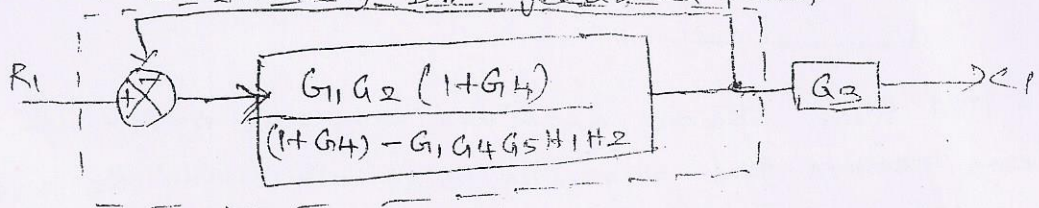 R1
+
-
G1 G2 (1+G4)
(1+G4) - G1 G4 G5 H1 H2
G3
C1